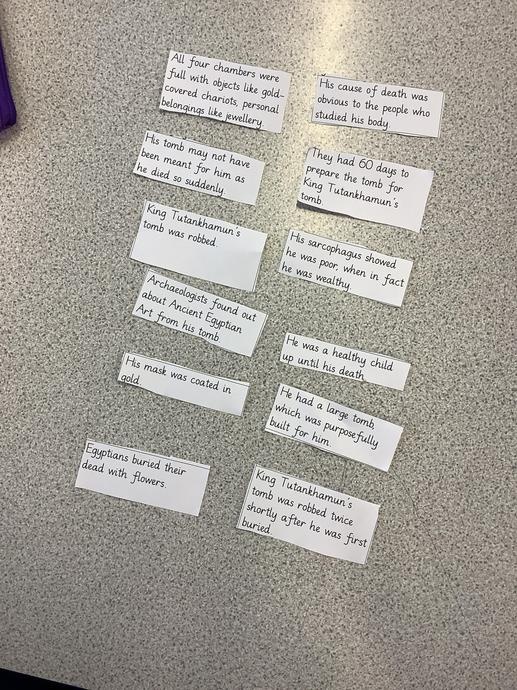 All four chambers were
full with objects like gold-
covered chariots, personal
belongings like jewellery.
His cause of death was
obvious to the people who
studied his body
His tomb may not have
been meant for him as
he died so suddenly.
They had 60 days to
prepare the tomb for
King Tutankhamun's
tomb.
King Tutankhamun's
tomb was robbed.
His sarcophagus showed
he was poor, when in fact
he was wealthy.
Archaeologists found out
about Ancient Egyptian
Art from his tomb
He was a healthy child
up until his death
His mask was coated in
gold.
He had a large tomb,
which was purposefully
built for him.
Egyptians buried their
dead with flowers.
King Tutankhamun's
tomb was robbed twice
shortly after he was first
buried.